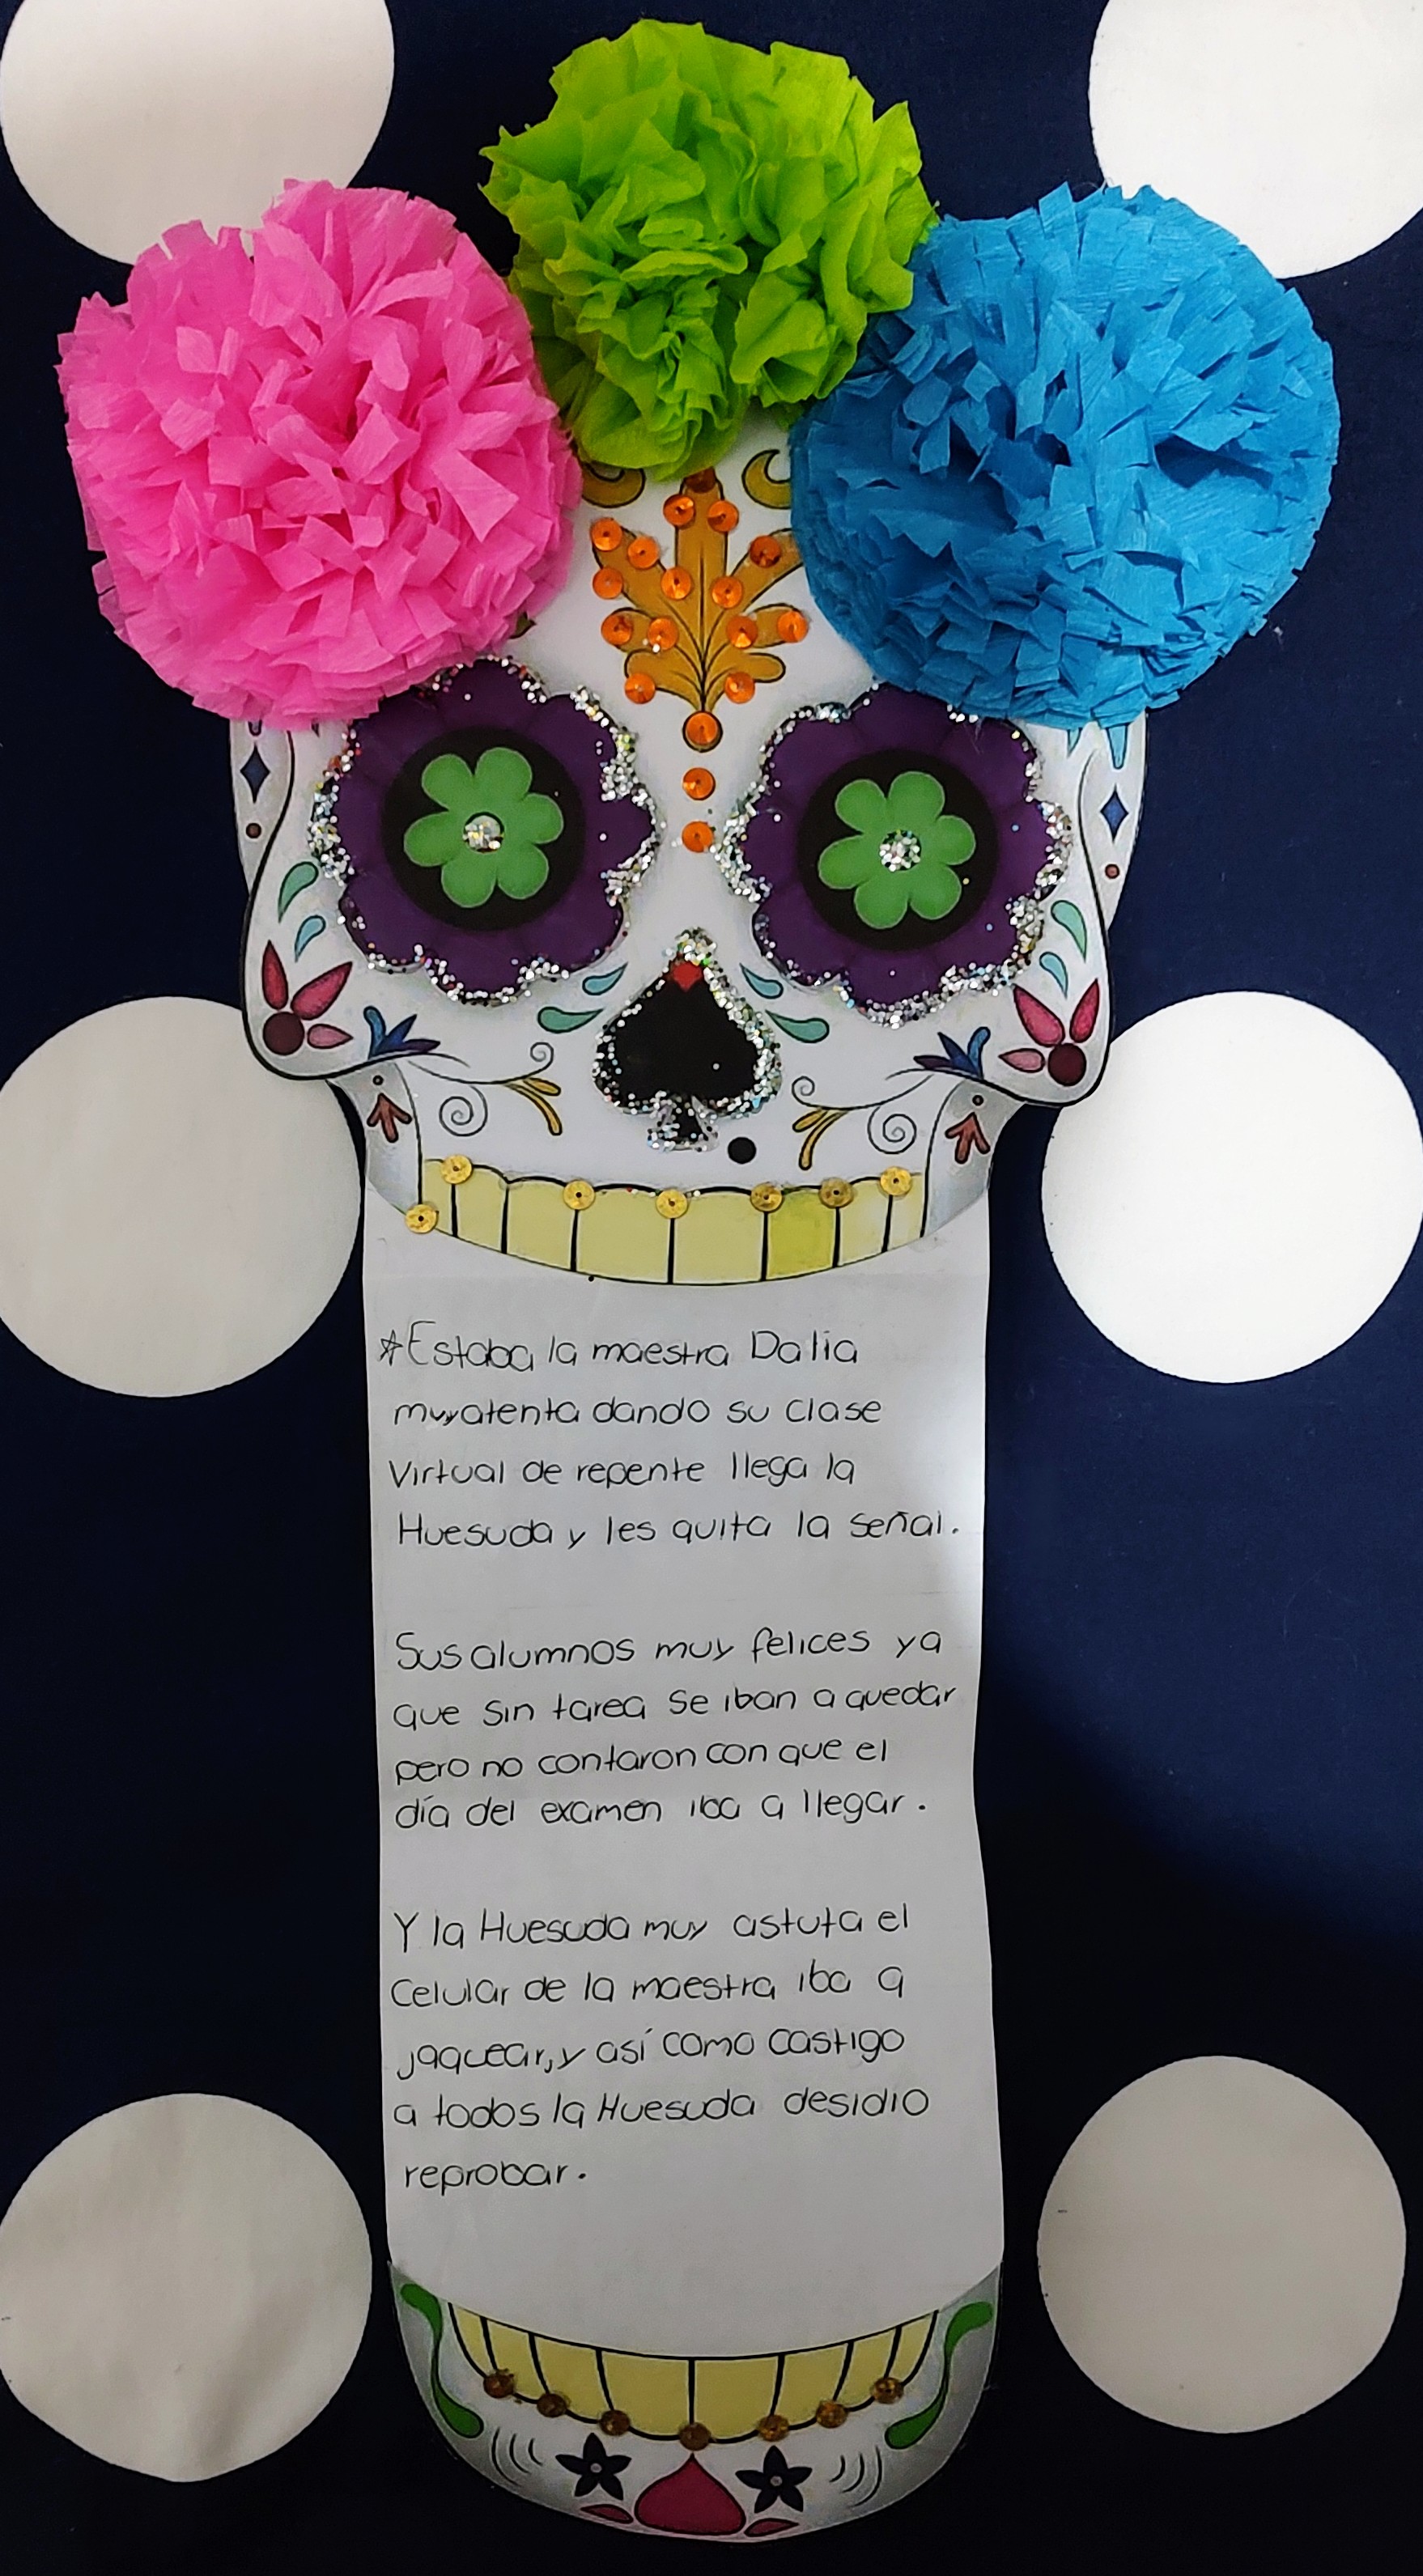 *Estaba la maestra Dalia
muy atenta dando su clase
Virtual de repente llega la
Huesuda y les quita la señal.
Sus alumnos muy felices ya
que sin tarea se iban a quedar
pero no contaron con que el
día del examen iba a llegar.
Y la Huesuda muy astuta el
Celular de la maestra iba a
jaquear, y así como castigo
a todos la Huesuda desidio
reprobar.